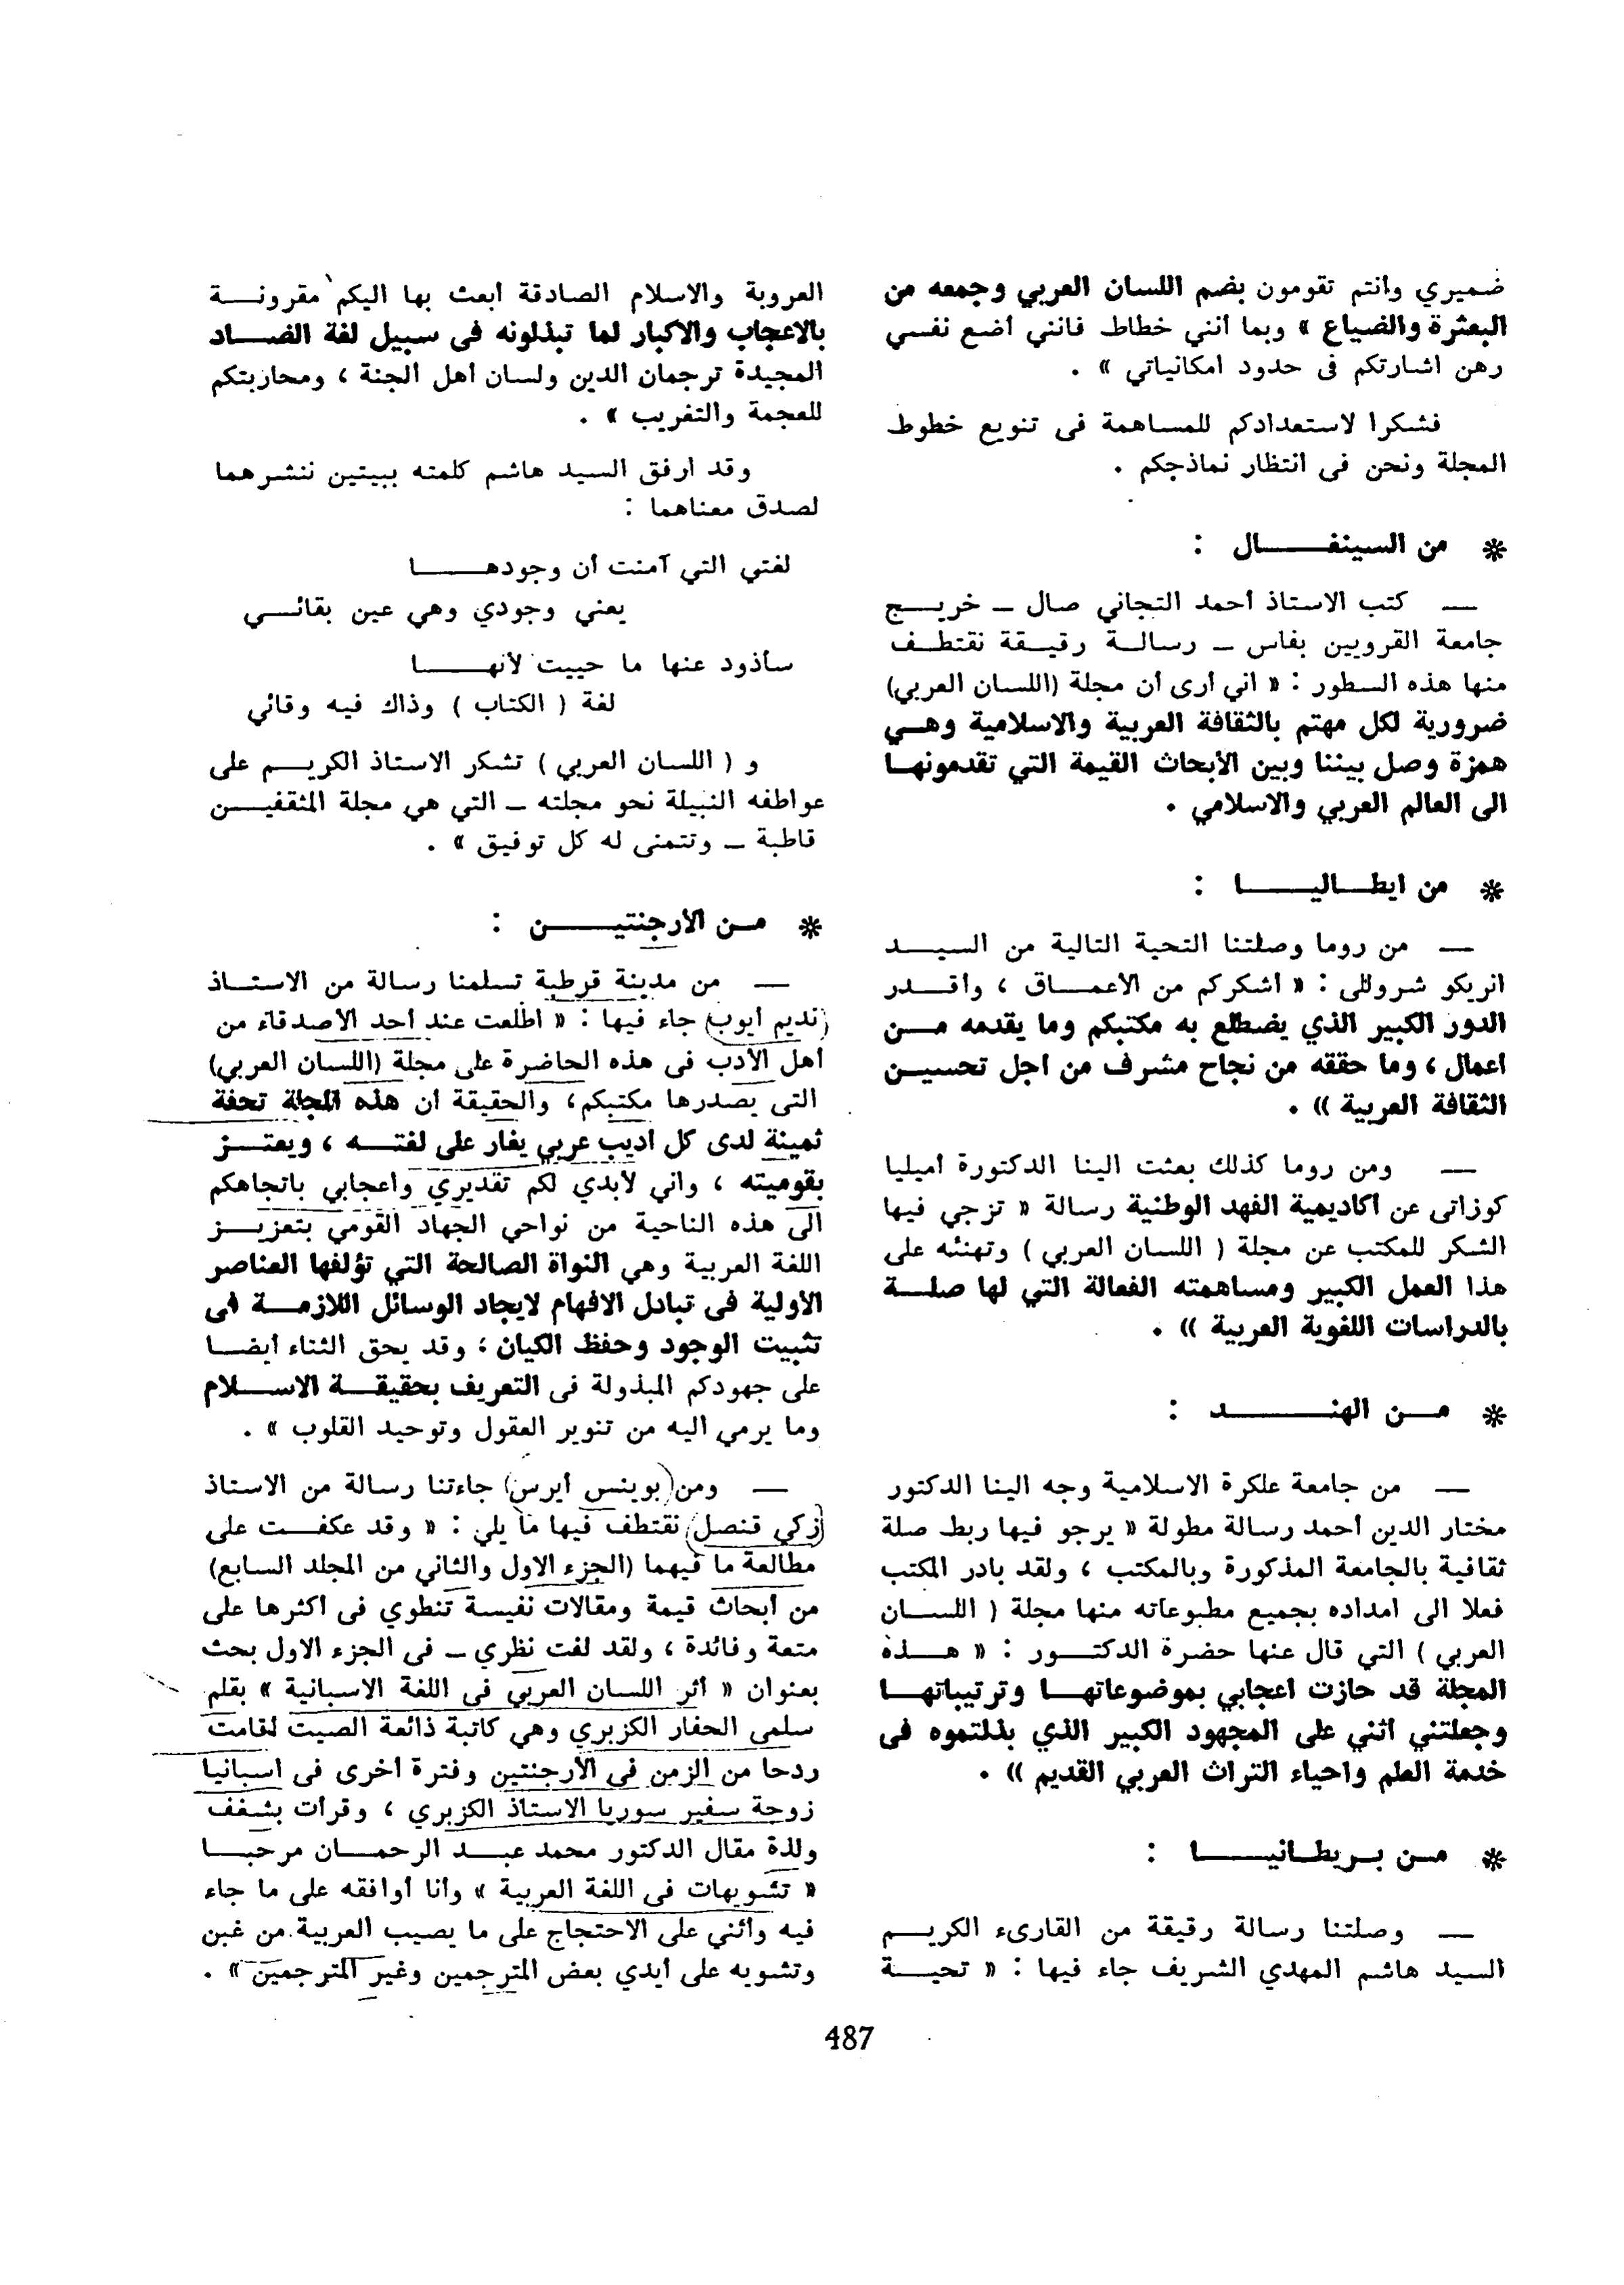 ضميري وأنتم تقومون بضم اللسان العربي وجمعه من
البعثرة والضياع » وبما أنني خطاط فانني أضع نفسي
رهن اشارتكم فى حدود امكانياتي » .
فشكرا لاستعدادكم للمساهمة فى تنويع خطوط
المجلة ونحن فى انتظار نماذجكم .
* من السينغال :
— كتب الاستاذ أحمد التجاني صال — خريج
جامعة القرويين بفاس — رسالة رقيقة نقتطف
منها هذه السطور : « اني أرى أن مجلة (اللسان العربي)
ضرورية لكل مهتم بالثقافة العربية والاسلامية وهي
همزة وصل بيننا وبين الأبحاث القيمة التي تقدمونها
الى العالم العربي والاسلامي .
* من ايطاليا :
— من روما وصلتنا التحية التالية من السيد
انريكو شروللى : « أشكركم من الاعماق ، وأقدر
الدور الكبير الذي يضطلع به مكتبكم وما يقدمه من
اعمال ، وما حققه من نجاح مشرف من اجل تحسين
الثقافة العربية » .
— ومن روما كذلك بعثت الينا الدكتورة أميليا
كوزاتى عن أكاديمية الفهد الوطنية رسالة « تزجي فيها
الشكر للمكتب عن مجلة ( اللسان العربي ) وتهنئه على
هذا العمل الكبير ومساهمته الفعالة التي لها صلة
بالدراسات اللغوية العربية » .
* من الهند :
— من جامعة علكرة الاسلامية وجه الينا الدكتور
مختار الدين أحمد رسالة مطولة « يرجو فيها ربط صلة
ثقافية بالجامعة المذكورة وبالمكتب ، ولقد بادر المكتب
فعلا الى امداده بجميع مطبوعاته منها مجلة ( اللسان
العربي ) التي قال عنها حضرة الدكتور : « هذه
المجلة قد حازت اعجابي بموضوعاتها وترتيباتها
وجعلتني اثني على المجهود الكبير الذي بذلتموه فى
خدمة العلم واحياء التراث العربي القديم » .
* من بريطانيا :
— وصلتنا رسالة رقيقة من القارىء الكريم
السيد هاشم المهدي الشريف جاء فيها : « تحية
العروبة والاسلام الصادقة أبعث بها اليكم مقرونة
بالاعجاب والاكبار لما تبذلونه فى سبيل لغة الضاد
المجيدة ترجمان الدين ولسان أهل الجنة ، ومحاربتكم
للعجمة والتغريب » .
وقد أرفق السيد هاشم كلمته ببيتين ننشرهما
لصدق معناهما :
لغتي التي آمنت أن وجودها
يعني وجودي وهي عين بقائي
سأذود عنها ما حييت لأنها
لغة ( الكتاب ) وذاك فيه وقائي
و ( اللسان العربي ) تشكر الاستاذ الكريم على
عواطفه النبيلة نحو مجلته — التي هي مجلة المثقفين
قاطبة — وتتمنى له كل توفيق » .
* من الأرجنتين :
— من مدينة قرطبة تسلمنا رسالة من الاستاذ
(نديم أيوب) جاء فيها : « اطلعت عند أحد الاصدقاء من
أهل الأدب فى هذه الحاضرة على مجلة (اللسان العربي)
التى يصدرها مكتبكم، والحقيقة أن هذه المجلة تحفة
ثمينة لدى كل أديب عربي يغار على لغته ، ويعتز
بقوميته ، واني لأبدي لكم تقديري واعجابي باتجاهكم
الى هذه الناحية من نواحي الجهاد القومي بتعزيز
اللغة العربية وهي النواة الصالحة التي تؤلفها العناصر
الأولية فى تبادل الافهام لايجاد الوسائل اللازمة فى
تثبيت الوجود وحفظ الكيان ؛ وقد يحق الثناء أيضا
على جهودكم المبذولة فى التعريف بحقيقة الاسلام
وما يرمي اليه من تنوير العقول وتوحيد القلوب » .
— ومن (بوينس أيرس) جاءتنا رسالة من الاستاذ
(زكي قنصل) نقتطف فيها ما يلي : « وقد عكفت على
مطالعة ما فيهما (الجزء الاول والثاني من المجلد السابع)
من أبحاث قيمة ومقالات نفيسة تنطوي فى أكثرها على
متعة وفائدة ، ولقد لفت نظري — فى الجزء الاول بحث
بعنوان « أثر اللسان العربي فى اللغة الاسبانية » بقلم
سلمى الحفار الكزبري وهي كاتبة ذائعة الصيت لقامت
ردحا من الزمن في الأرجنتين وفترة أخرى فى اسبانيا
زوجة سفير سوريا الاستاذ الكزبري ، وقرأت بشغف
ولذة مقال الدكتور محمد عبد الرحمان مرحبا
« تشويهات فى اللغة العربية » وأنا أوافقه على ما جاء
فيه وأثني على الاحتجاج على ما يصيب العربية من غبن
وتشويه على أيدي بعض المترجمين وغير المترجمين » .
487